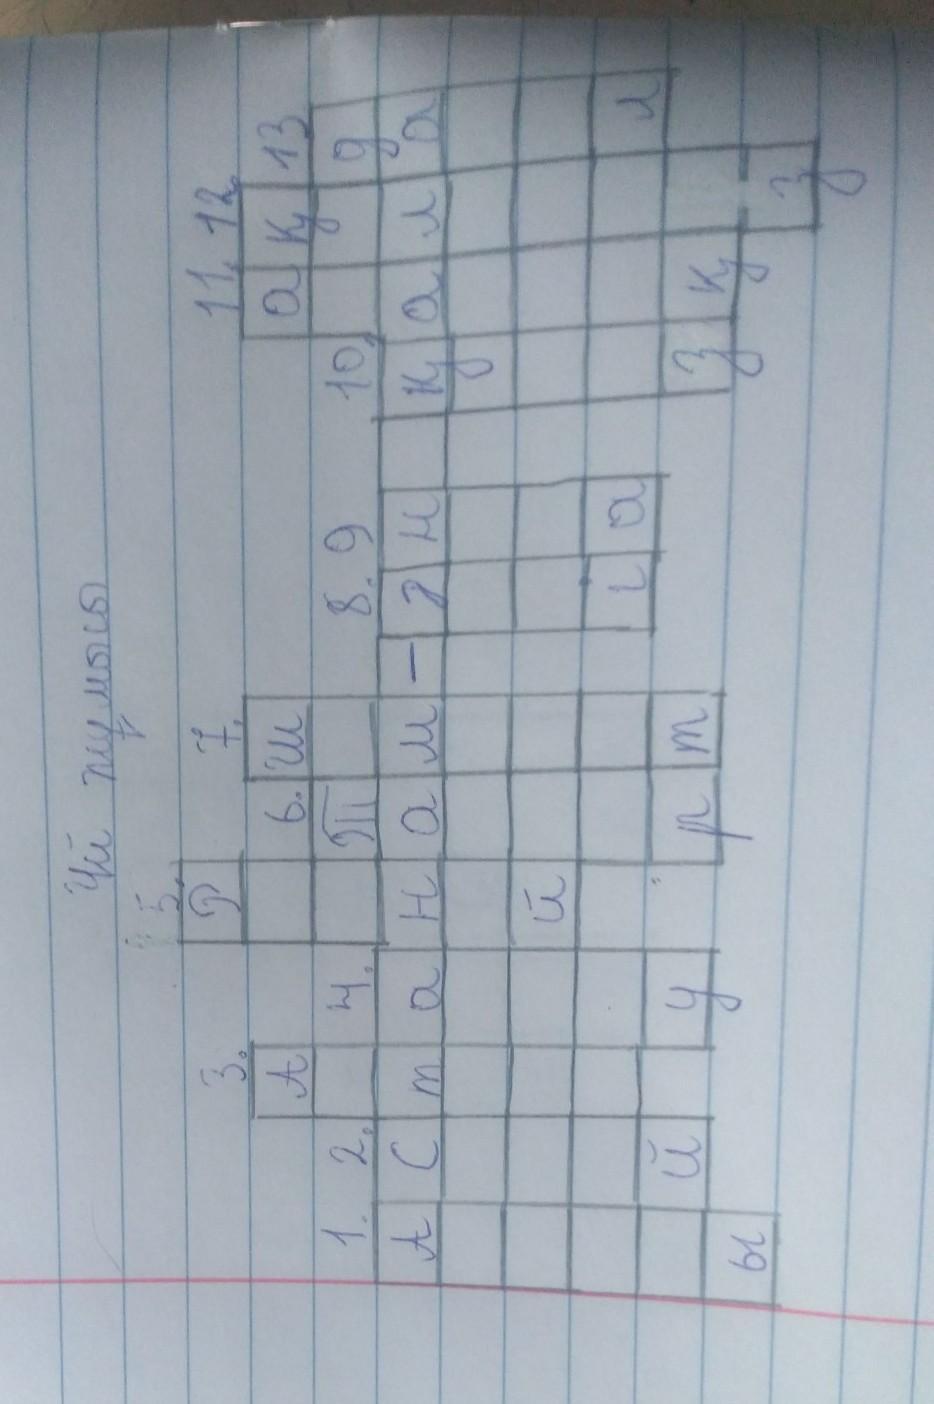 Үй жұмысы
5.
3. Д 7. 11. 12.
А 6. Ш а қ 13
1. 2. 4. П 8. 9 10. д
А С т а н а м - ә н қ а л а
й
і а л
й у р т з қ
ы з